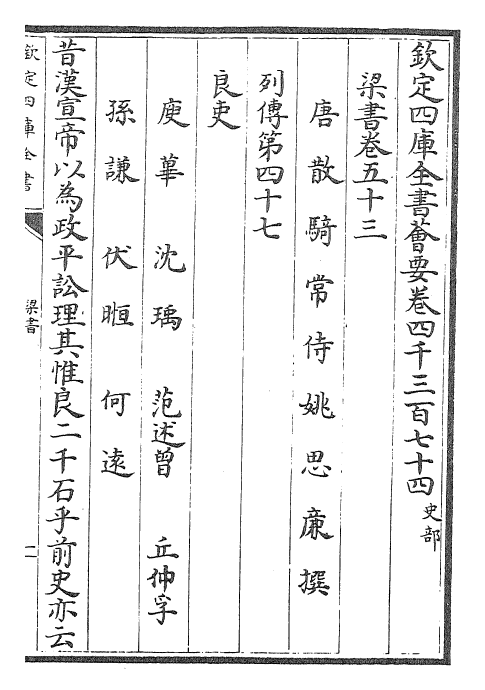 欽定四庫全書薈要卷四千三百七十四 史部
梁書卷五十三
唐散騎常侍姚思廉撰
列傳第四十七
良吏
庾蓽 沈瑀 范述曾 丘仲孚
孫謙 伏暅 何遠
昔漢宣帝以為政平訟理其惟良二千石乎前史亦云
欽定四庫全書
梁書
一